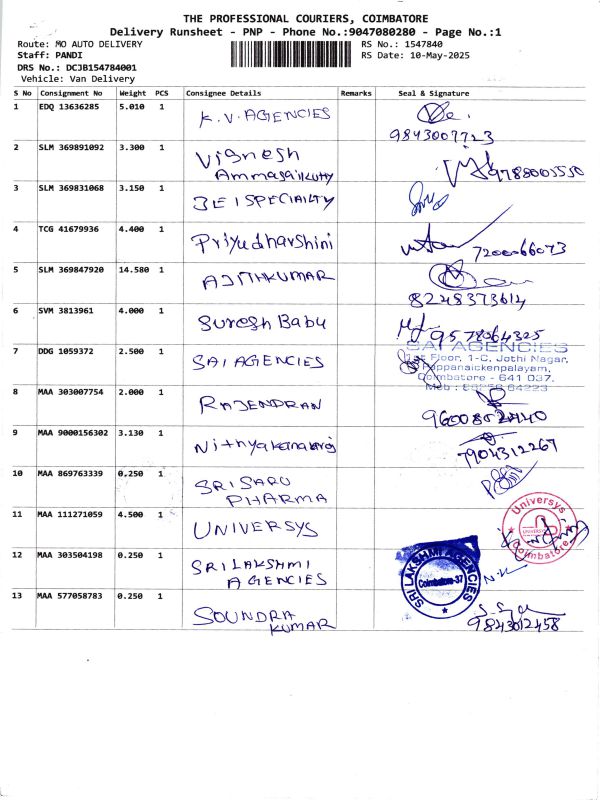 THE PROFESSIONAL COURIERS, COIMBATORE
Delivery Runsheet - PNP - Phone No.:9047080280 - Page No.:1
Route: MO AUTO DELIVERY RS No.: 1547840
Staff: PANDI RS Date: 10-May-2025
DRS No.: DCJB154784001
Vehicle: Van Delivery
S No Consignment No Weight PCS Consignee Details Remarks Seal & Signature
1 EDQ 13636285 5.010 1 K.V. AGENCIES
9843007723
2 SLM 369891092 3.300 1 Vignesh
Ammasaikutty 9788005550
3 SLM 369831068 3.150 1 BEI SPECIALITY
4 TCG 41679936 4.400 1 Priyudharshini 7200066073
5 SLM 369847920 14.580 1 AJITHKUMAR
8248373614
6 SVM 3813961 4.000 1 Suresh Babu 9578064325
7 DDG 1059372 2.500 1 SAI AGENCIES SAI AGENCIES
1st Floor, 1-C, Jothi Nagar,
Pappanaickenpalayam,
Coimbatore - 641 037.
Mob :
8 MAA 303007754 2.000 1 RAJENDRAN
9 MAA 9000156302 3.130 1 7904312267
10 MAA 869763339 0.250 1 SRI SARU
PHARMA
11 MAA 111271059 4.500 1 UNIVERSYS Universys
Coimbatore
12 MAA 303504198 0.250 1 SRI LAKSHMI
AGENCIES SRI LAKSHMI AGENCIES
Coimbatore-37
13 MAA 577058783 0.250 1 SOUNDRA
KUMAR 9843012458